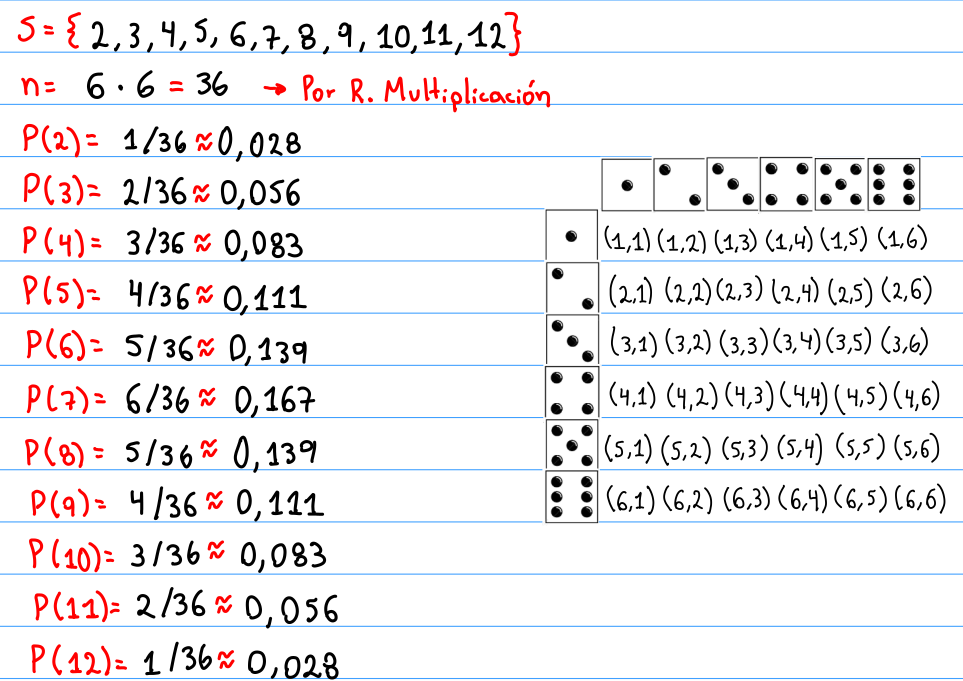 S = { 2, 3, 4, 5, 6, 7, 8, 9, 10, 11, 12}
n = 6 · 6 = 36 → Por R. Multiplicación
P(2) = 1/36 ≈ 0,028
P(3) = 2/36 ≈ 0,056
P(4) = 3/36 ≈ 0,083
P(5) = 4/36 ≈ 0,111
P(6) = 5/36 ≈ 0,139
P(7) = 6/36 ≈ 0,167
P(8) = 5/36 ≈ 0,139
P(9) = 4/36 ≈ 0,111
P(10) = 3/36 ≈ 0,083
P(11) = 2/36 ≈ 0,056
P(12) = 1/36 ≈ 0,028
(1,1) (1,2) (1,3) (1,4) (1,5) (1,6)
(2,1) (2,2) (2,3) (2,4) (2,5) (2,6)
(3,1) (3,2) (3,3) (3,4) (3,5) (3,6)
(4,1) (4,2) (4,3) (4,4) (4,5) (4,6)
(5,1) (5,2) (5,3) (5,4) (5,5) (5,6)
(6,1) (6,2) (6,3) (6,4) (6,5) (6,6)